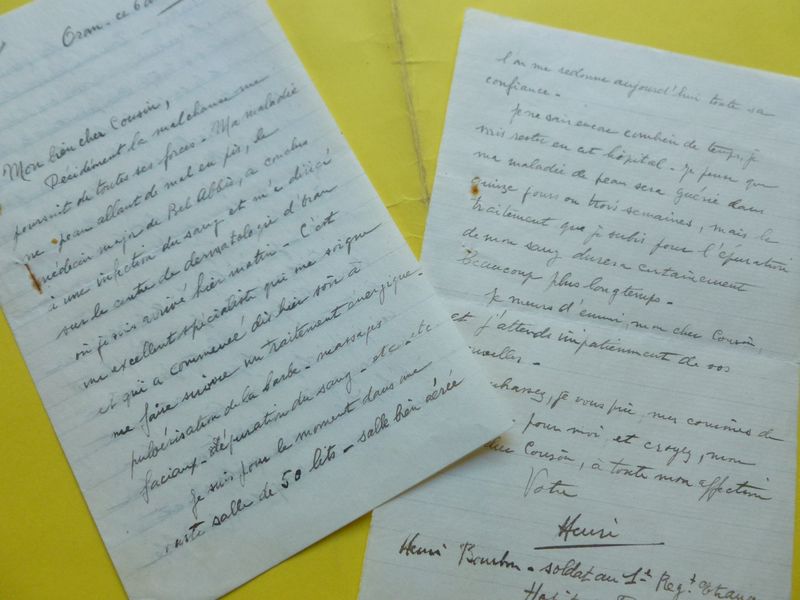 Oran - ce 6
Mon bien cher Cousin,
Décidément la malchance me
poursuit de toutes ses forces - Ma maladie
de peau allant de mal en pis, le
médecin major de Bel Abbès, a conclu
à une infection du sang et m'a dirigé
sur le centre de dermatologie d'Oran
où je suis arrivé hier matin - C'est
un excellent spécialiste qui me soigne
et qui a commencé dès hier soir à
me faire suivre un traitement énergique -
pulvérisation de la barbe - massages
faciaux - dépuration du sang - etc - etc
Je suis pour le moment dans une
vaste salle de 50 lits - salle bien aérée
l'on me redonne aujourd'hui toute sa
confiance -
Je ne sais encore combien de temps je
vais rester en cet hôpital - Je pense que
ma maladie de peau sera guérie dans
quinze jours ou trois semaines, mais le
traitement que je subis pour l'épuration
de mon sang durera certainement
beaucoup plus longtemps -
Je meurs d'ennui, mon cher Cousin,
et j'attends impatiemment de vos
nouvelles -
embrassez, je vous prie, mes cousines de
pour moi, et croyez, mon
cher Cousin, à toute mon affection
Votre
Henri
Henri Bourbon - soldat au 1er Regt